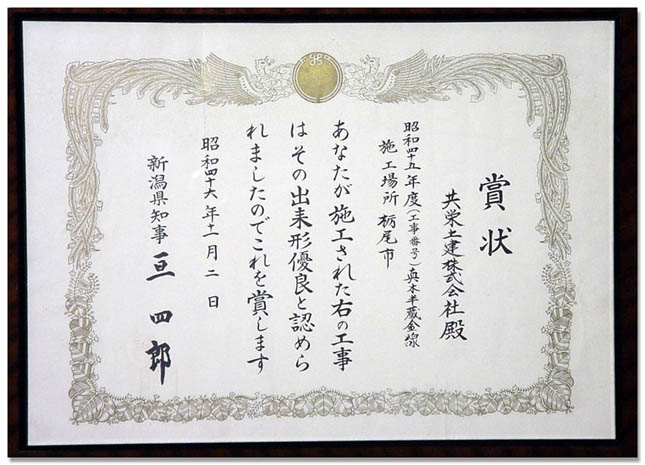 賞状
共栄土建株式会社殿
昭和四十五年度(工事番号)真木半蔵金線
施工場所 栃尾市
あなたが施工された右の工事
はその出来形優良と認めら
れましたのでこれを賞します
昭和四十六年十一月二日
新潟県知事 亘四郎